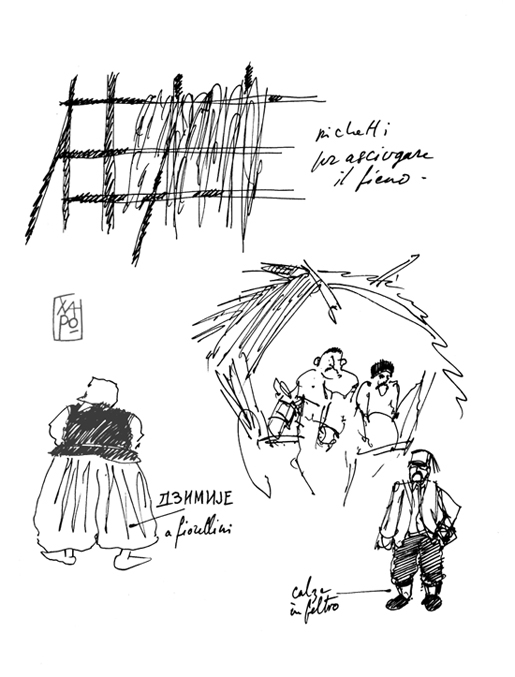 pichetti
per asciugare
il fieno -
ХА
РО
ДЗИМИЈЕ
a fiorellini
calze
in feltro